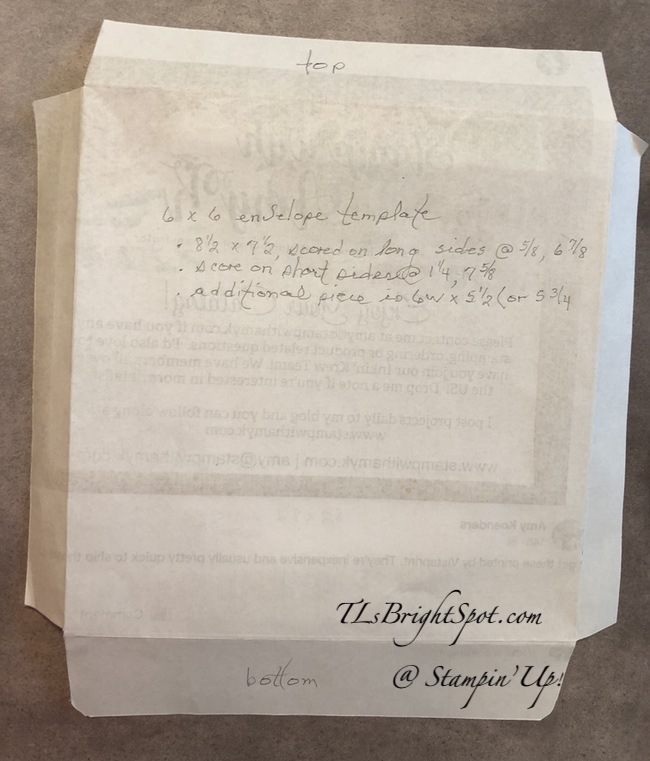 top
6 x 6 envelope template
• 8 1/2 x 7 1/2, scored on long sides @ 5/8, 6 7/8
• score on short sides @ 1 1/4, 7 5/8
• additional piece is 6w x 5 1/2 (or 5 3/4
Please contact me at amy@stampwithamyk.com if you have any
stamping, ordering or product related questions. I'd also love to
have you join our Inkin' Krew Team! We have members all over
the US! Drop me a note if you're interested in more
I post projects daily to my blog and you can follow along at
www.stampwithamyk.com
www.stampwithamyk.com | amy@stampwithamyk.com
Amy Koenders
get these printed by Vistaprint. They're inexpensive and usually pretty quick to ship
TLsBrightSpot.com
bottom
@ Stampin' Up!